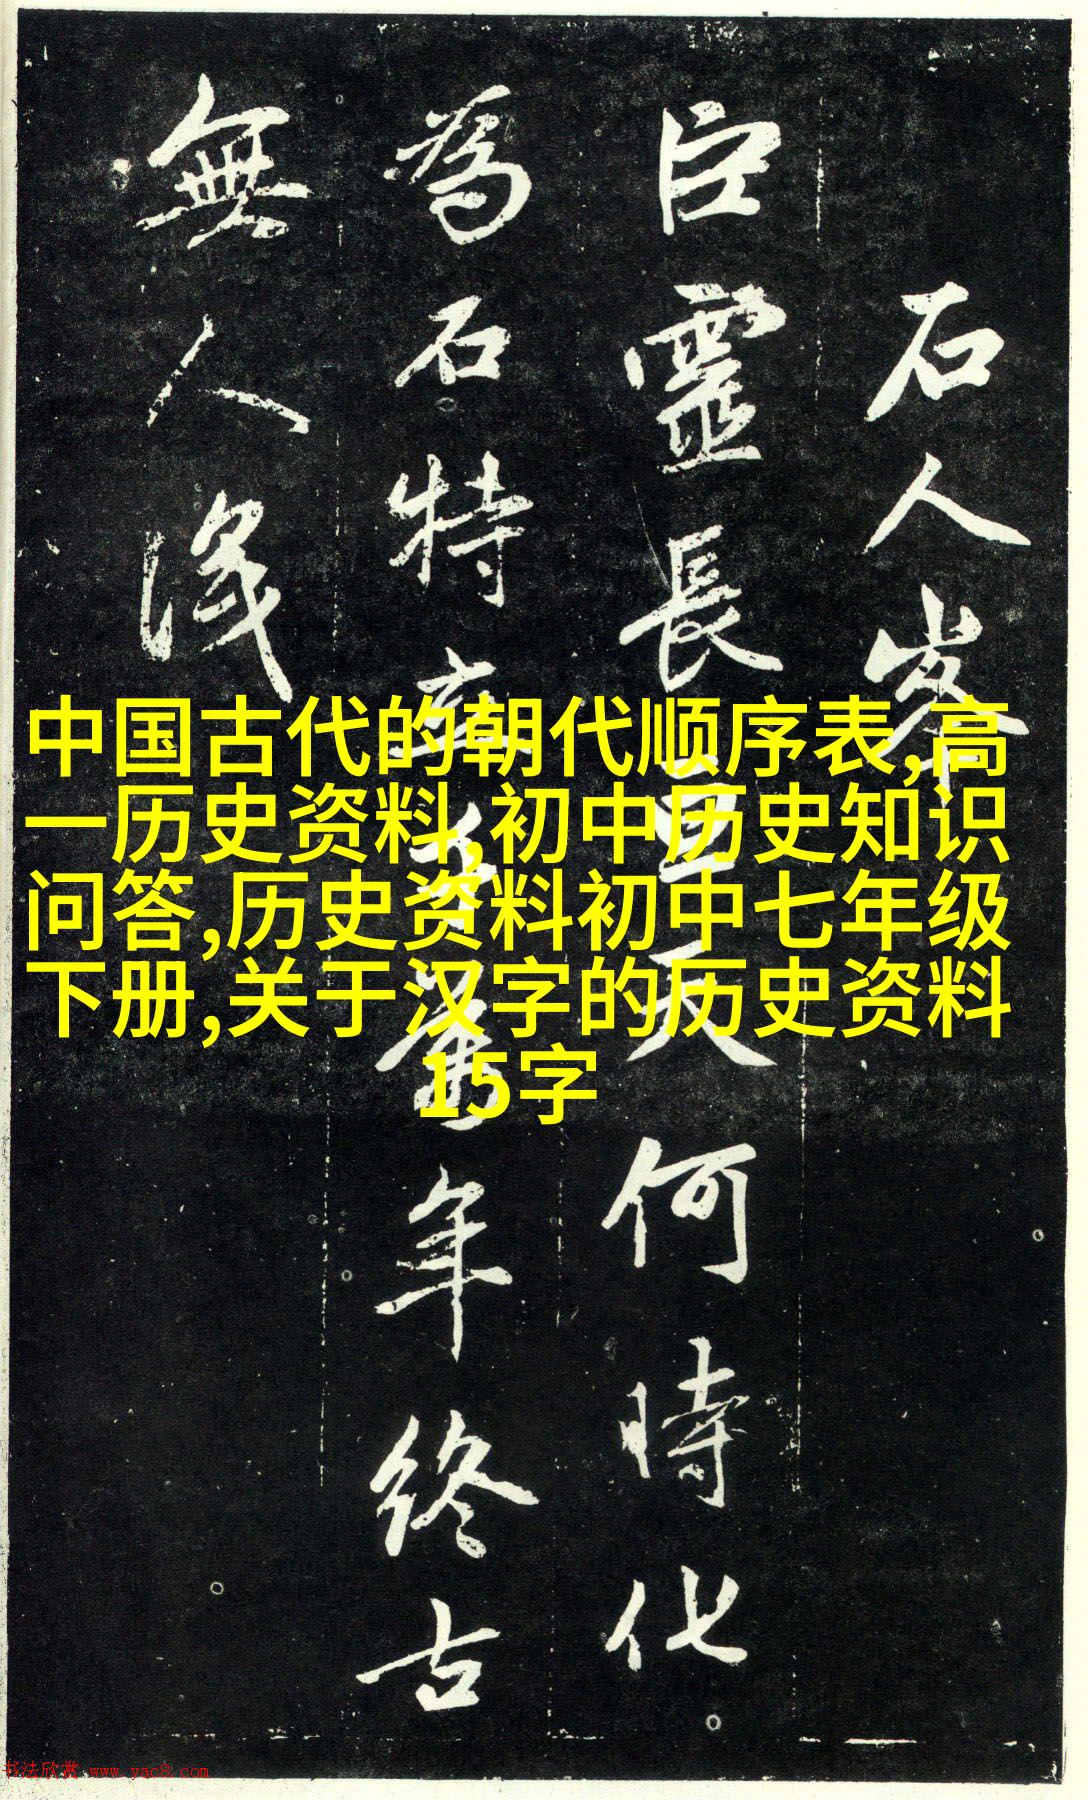 石人峯
巨靈長亘天何時化
為石特立千萬年終古
無人識
中国古代的朝代顺序表,高
一历史资料,初中历史知识
问答,历史资料初中七年级
下册,关于汉字的历史资料
15字
书法欣赏 www.yac8.com